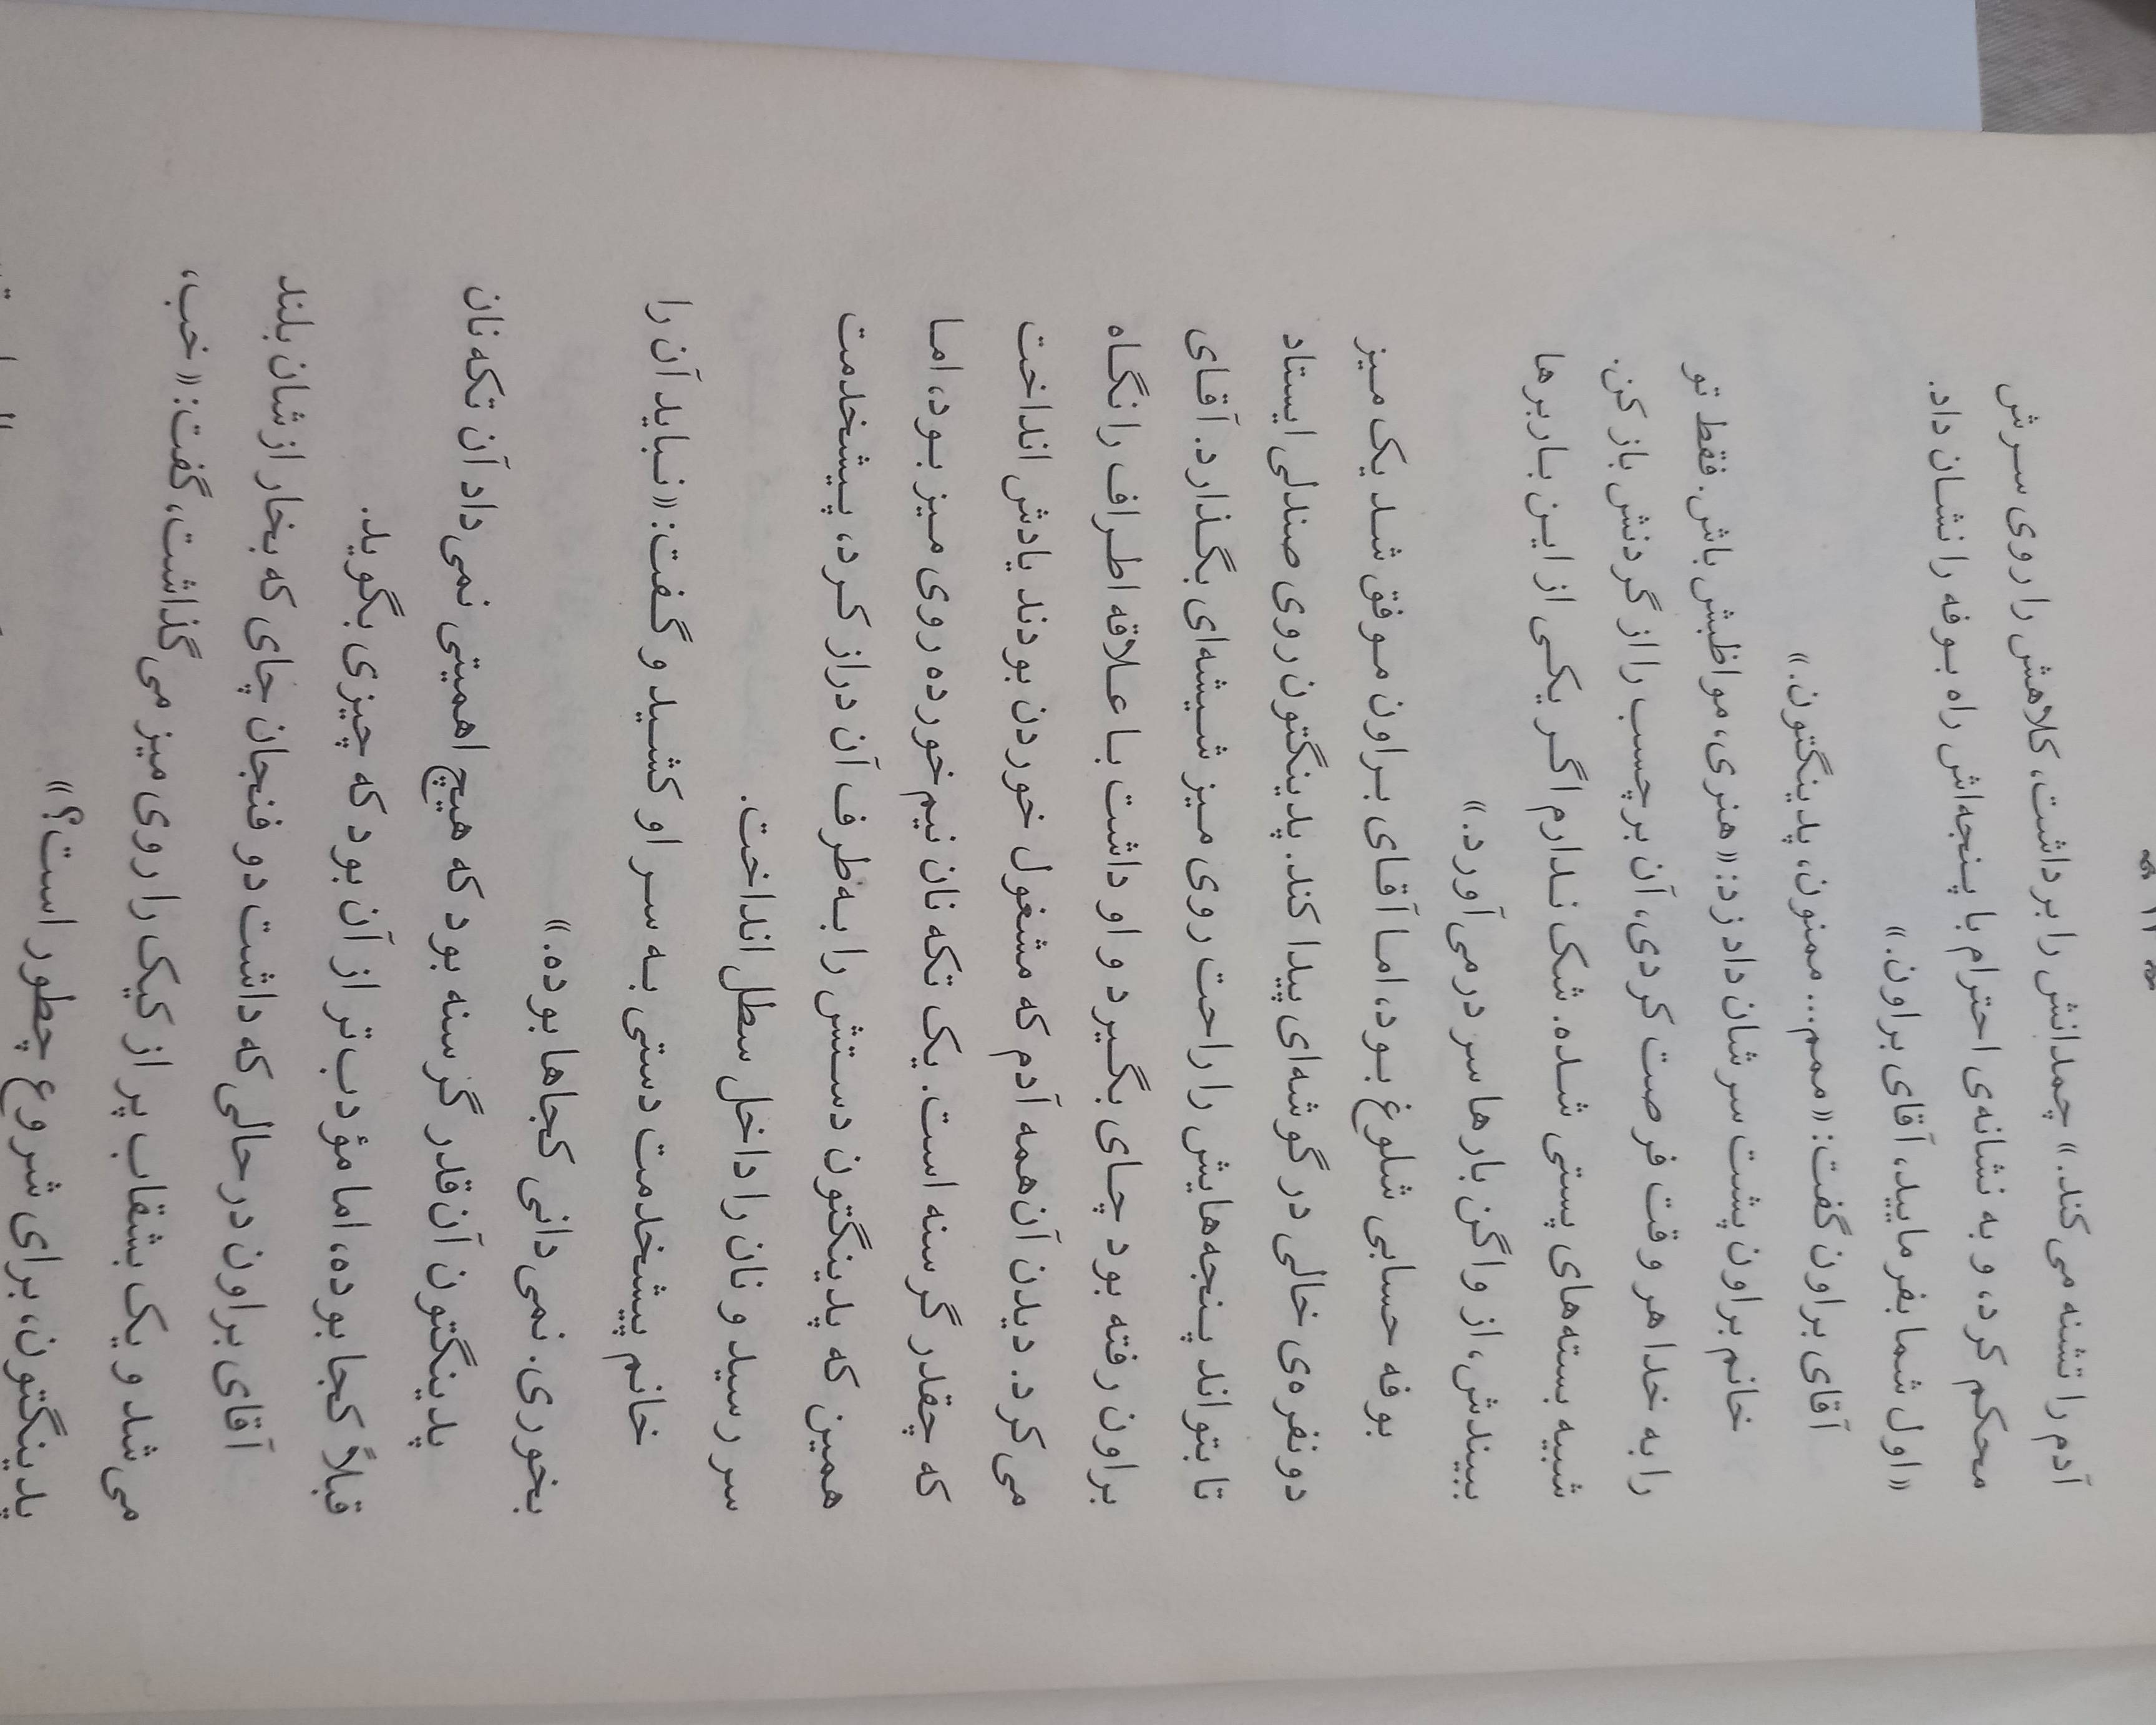 آدم را تشنه می‌کند.» چمدانش را برداشت، کلاهش را روی سرش
محکم کرد، و به نشانه‌ی احترام با پنجه‌اش راه بوفه را نشان داد.
«اول شما بفرمایید، آقای براون.»
آقای براون گفت: «ممم... ممنون، پدینگتون.»
خانم براون پشت سرشان داد زد: «هنری، مواظبش باش. فقط تو
را به خدا هر وقت فرصت کردی، آن برچسب را از گردنش باز کن.
شبیه بسته‌های پستی شده. شک ندارم اگر یکی از این باربرها
ببیندش، از واگن بارها سر درمی‌آورد.»
بوفه حسابی شلوغ بود، اما آقای براون موفق شد یک میز
دونفره‌ی خالی در گوشه‌ای پیدا کند. پدینگتون روی صندلی ایستاد
تا بتواند پنجه‌هایش را راحت روی میز شیشه‌ای بگذارد. آقای
براون رفته بود چای بگیرد و او داشت با علاقه اطراف را نگاه
می‌کرد. دیدن آن‌همه آدم که مشغول خوردن بودند یادش انداخت
که چقدر گرسنه است. یک تکه نان نیم‌خورده روی میز بود، اما
همین که پدینگتون دستش را به‌طرف آن دراز کرد، پیشخدمت
سر رسید و نان را داخل سطل انداخت.
خانم پیشخدمت دستی به سر او کشید و گفت: «نباید آن را
بخوری. نمی‌دانی کجاها بوده.»
پدینگتون آن‌قدر گرسنه بود که هیچ اهمیتی نمی‌داد آن تکه نان
قبلاً کجا بوده، اما مؤدب‌تر از آن بود که چیزی بگوید.
آقای براون درحالی‌که داشت دو فنجان چای که بخار ازشان بلند
می‌شد و یک بشقاب پر از کیک را روی میز می‌گذاشت، گفت: «خب،
پدینگتون، برای شروع چطور است؟»